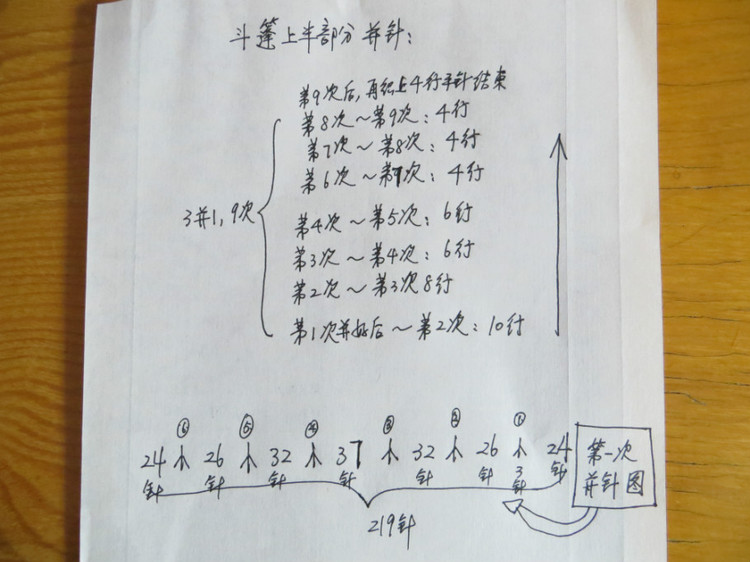 斗篷上半部分并针:
第9次后,再织上4行平针结束
第8次~第9次:4行
第7次~第8次:4行
第6次~第7次:4行
3并1,9次
第4次~第5次:6行
第3次~第4次:6行
第2次~第3次8行
第1次并好后~第2次:10行
⑥ ⑤ ④ ③ ② ①
24 26 32 37 32 26 24
针 针 针 针 针 针 3针 针
219针
第一次
并针图